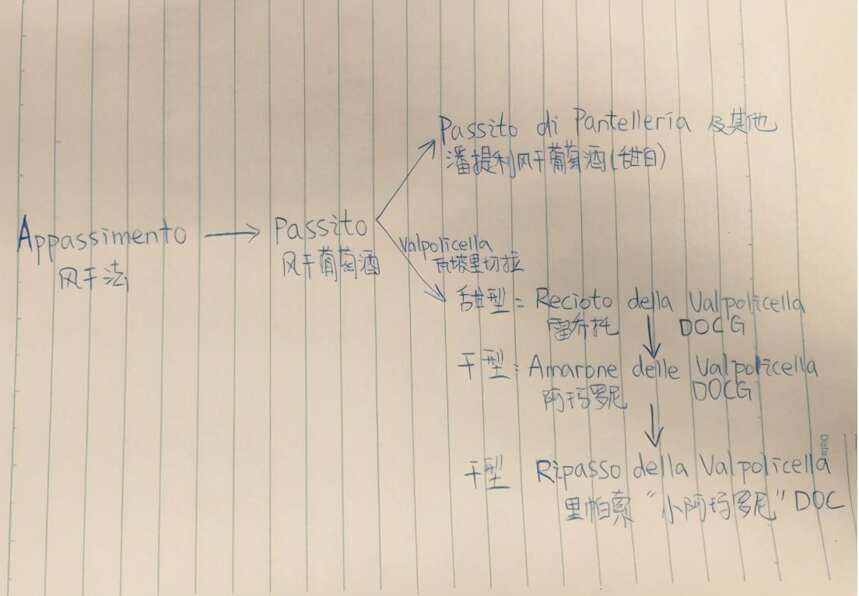 Passito di Pantelleria 及其他
潘提利风干葡萄酒(甜白)
Appassimento → Passito
风干法 风干葡萄酒
Valpolicella
瓦坡里切拉
甜型: Recioto della Valpolicella
雷乔托 DOCG
干型: Amarone delle Valpolicella
阿玛罗尼 DOCG
干型 Ripasso della Valpolicella
里帕索 “小阿玛罗尼” DOC